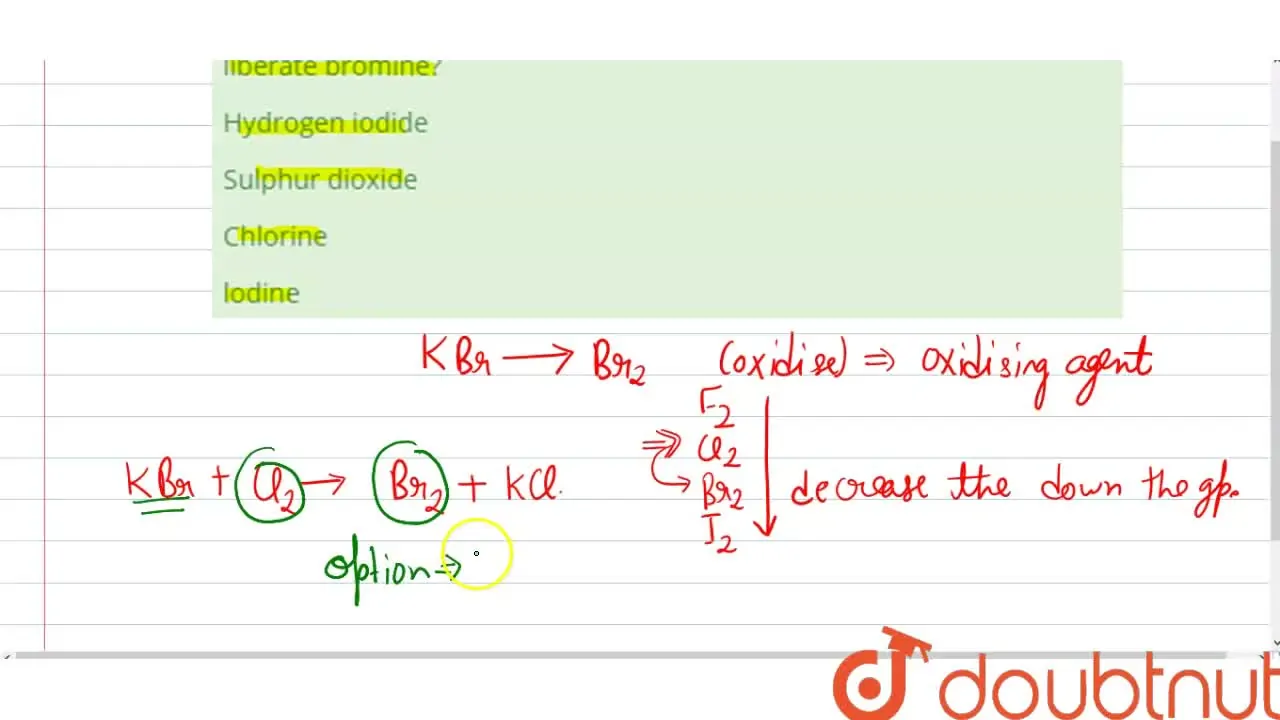 liberate bromine?
Hydrogen iodide
Sulphur dioxide
Chlorine
Iodine
KBr → Br2 (oxidise) ⇒ oxidising agent
F2
⇒ Cl2
Br2
I2
decrease the down the gp.
KBr + Cl2 → Br2 + KCl.
option →
doubtnut